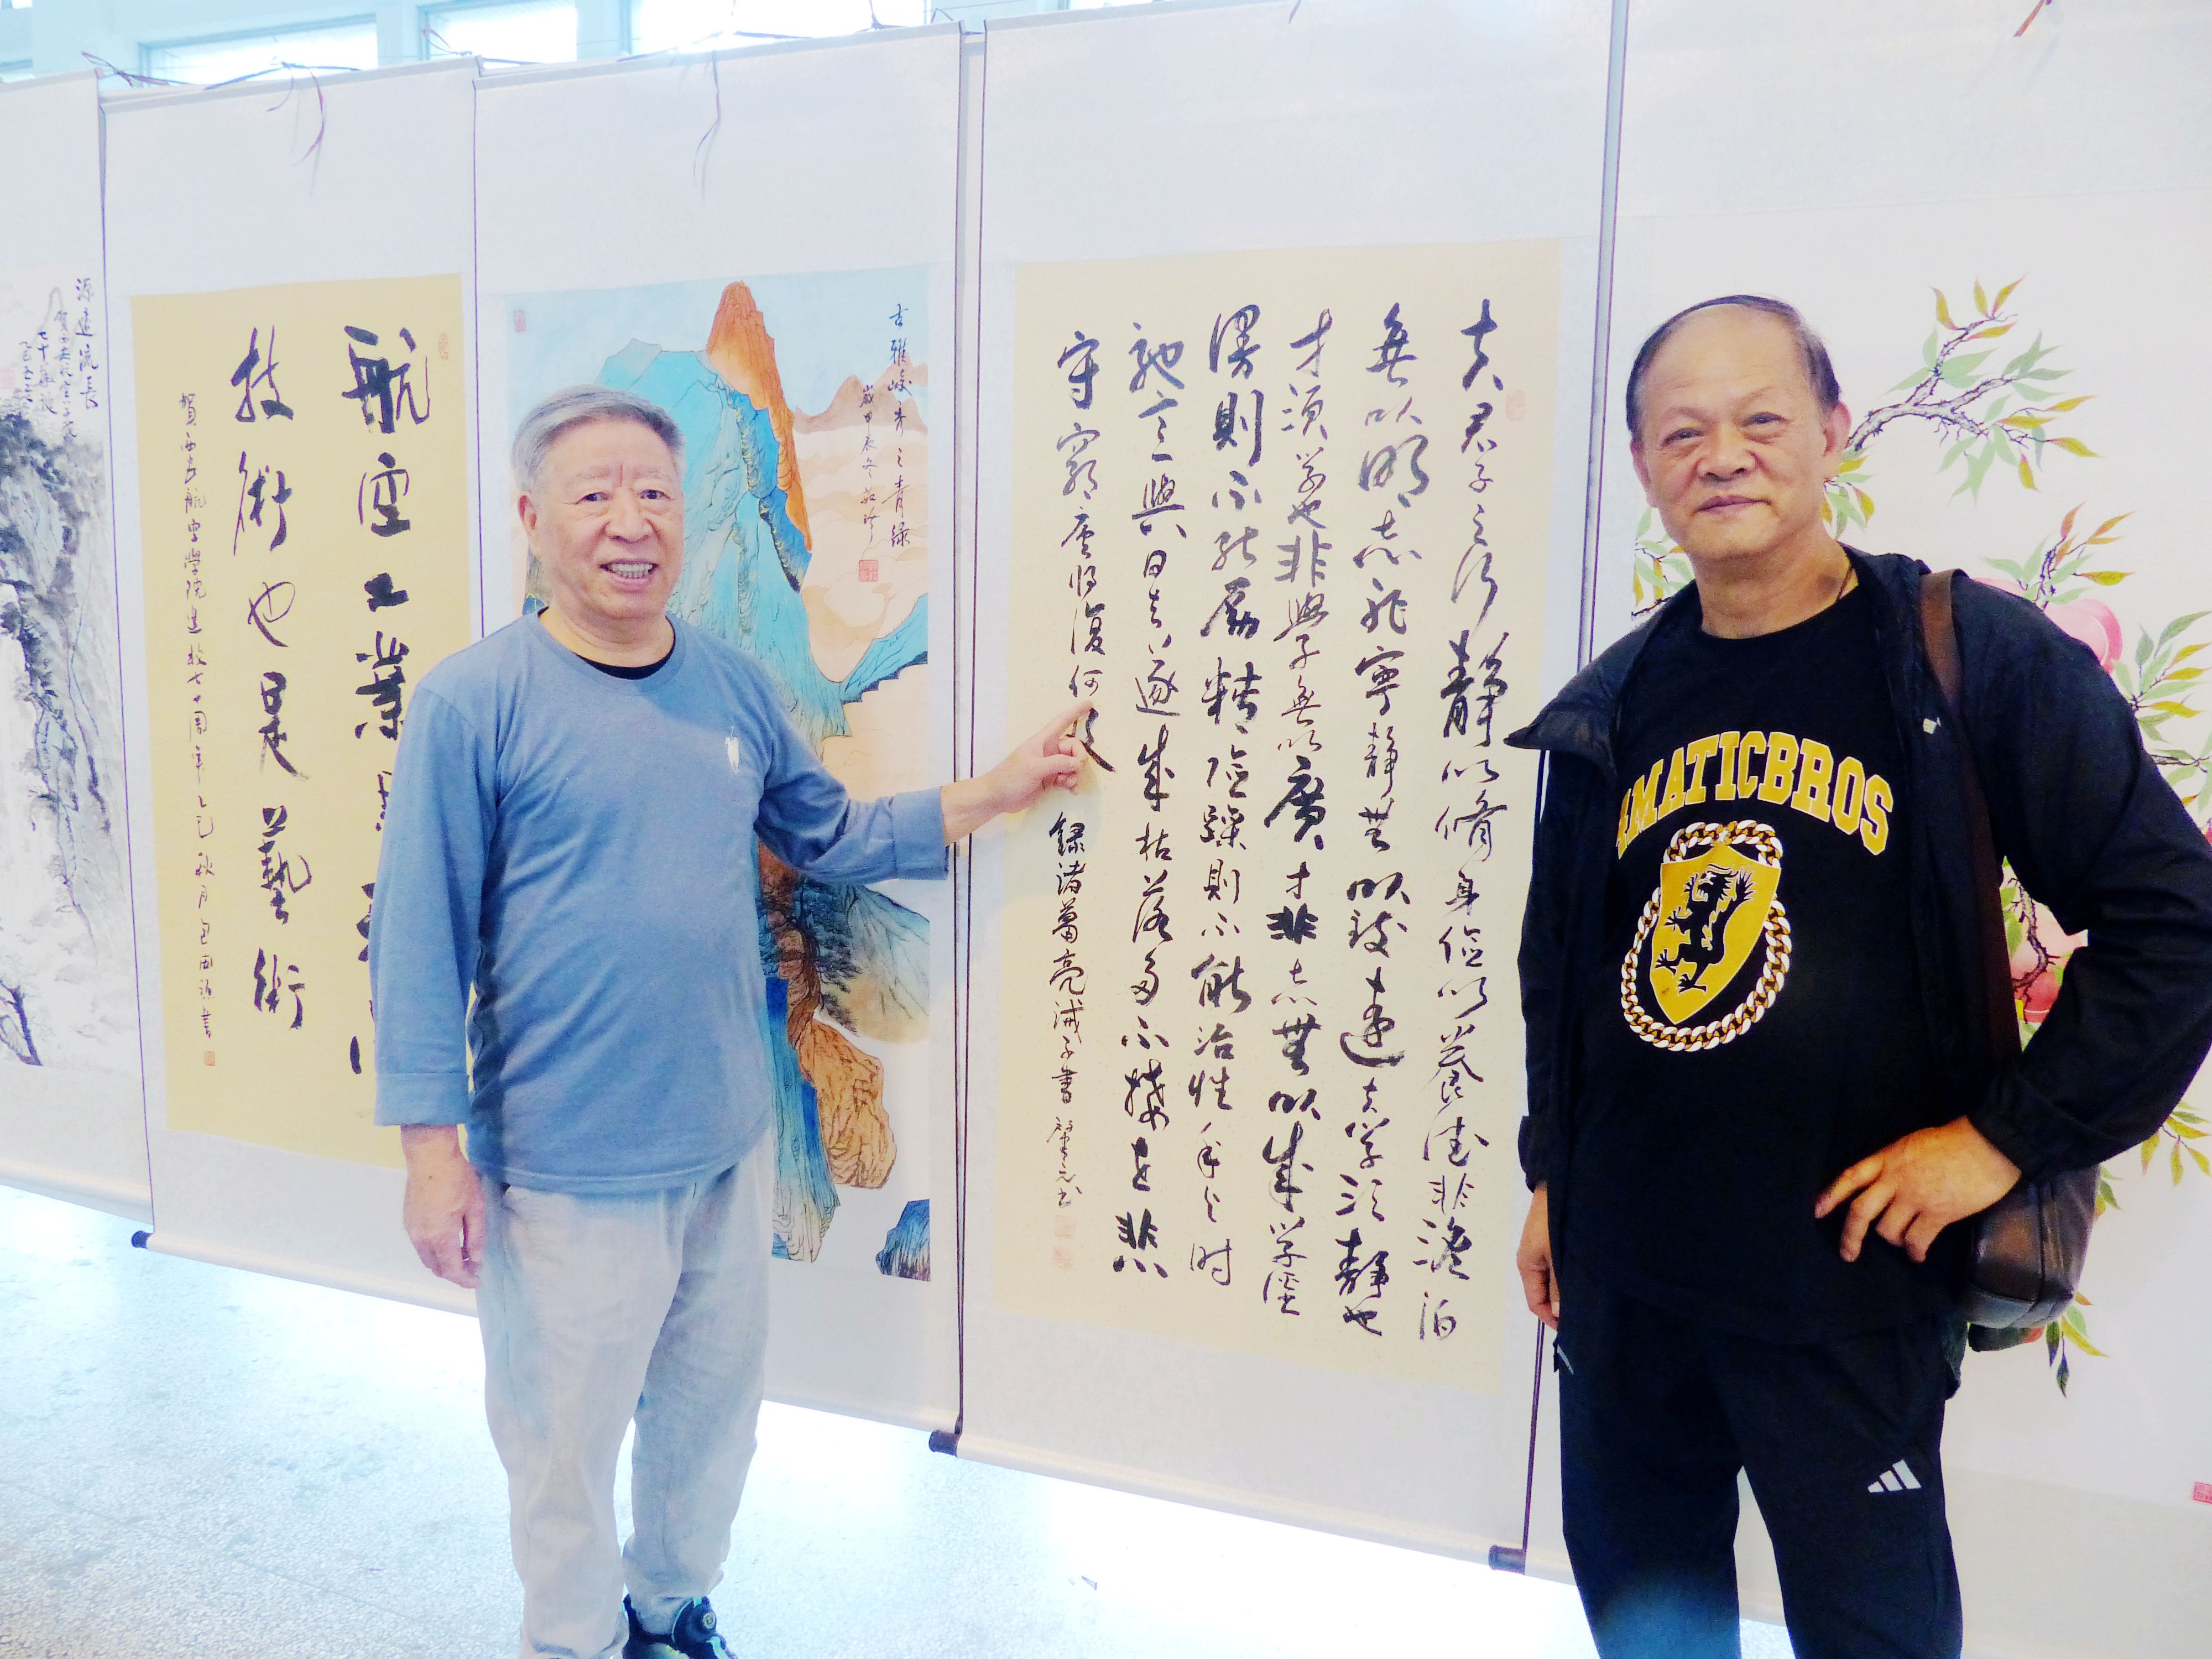 夫君子之行静以脩身俭以养德非澹泊
無以明志非寧静無以致遠夫学须静也
才须学也非學無以廣才非志無以成学淫
慢則不能勵精险躁則不能治性年与时
馳意與日去遂成枯落多不接世悲
守窮廬将復何及
録诸葛亮诫子書
古雅峻秀之青绿
歲甲辰冬茹珍
航空工業
技術也是藝術
賀西安航空學院建校七十周年乙巳秋月
源遠流長
AMATICBROS